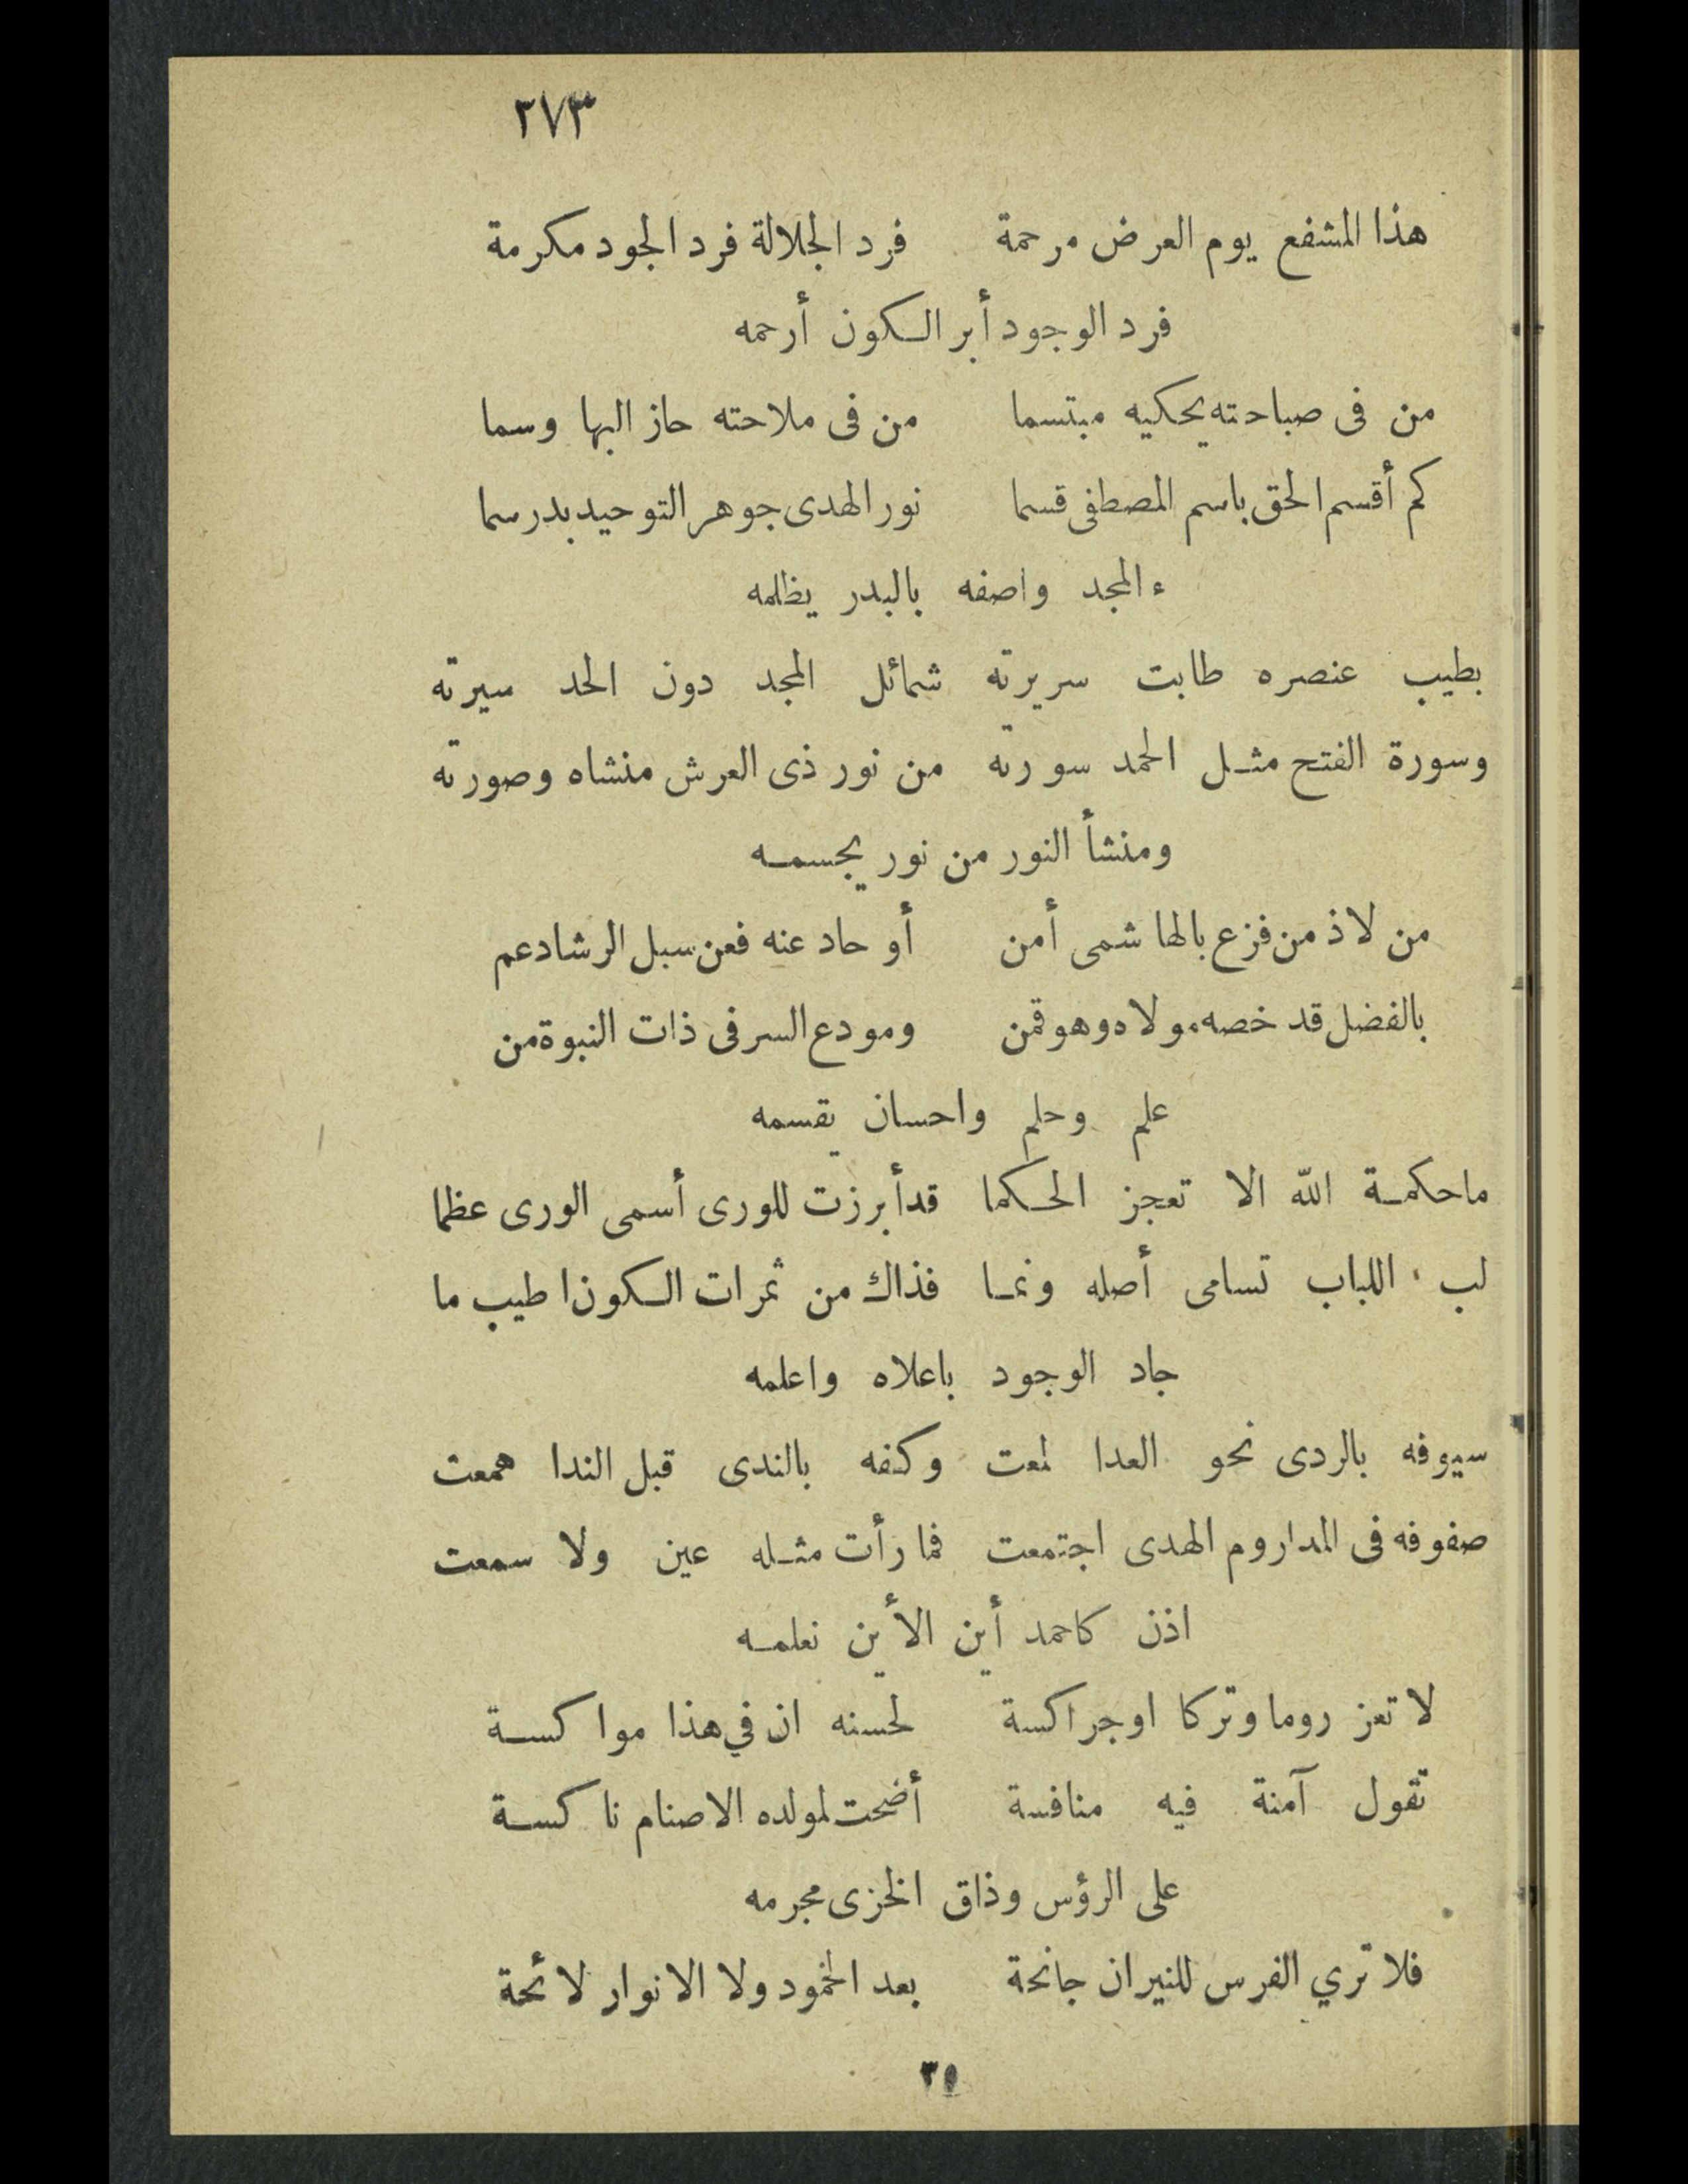 ٢٧٣
هذا المشفع يوم العرض مرحمة فرد الجلالة فرد الجود مكرمة
فرد الوجود أبر الكون أرحمه
من فى صباحته يحكيه مبتسما من فى ملاحته حاز البها وسما
كم أقسم الحق باسم المصطفى قسما نور الهدى جوهر التوحيد بدر سما
ء المجد واصفه بالبدر يظلمه
بطيب عنصره طابت سريرته شمائل المجد دون الحد سيرته
وسورة الفتح مثل الحمد سورته من نور ذى العرش منشاه وصورته
ومنشأ النور من نور يجسمه
من لاذ من فزع بالهاشمى أمن أو حاد عنه فعن سبل الرشاد عم
بالفضل قد خصه مولاه وهو قمن ومودع السر فى ذات النبوة من
علم وحلم واحسان يقسمه
ما حكمة الله الا تعجز الحكما قد أبرزت للورى أسمى الورى عظما
لب اللباب تسامى أصله ونما فذاك من ثمرات الكون اطيب ما
جاد الوجود باعلاه واعلمه
سيوفه بالردى نحو العدا لمعت وكفه بالندى قبل الندا همعت
صفوفه فى المدا روم الهدى اجتمعت فما رأت مثله عين ولا سمعت
اذن كاحمد أين الأين نعلمه
لا تعز روما وتركا او جراكسة لحسنه ان في هذا مواكسة
تقول آمنة فيه منافسة أضحت لمولده الاصنام ناكسة
على الرؤس وذاق الخزى مجرمه
فلا تري الفرس للنيران جانحة بعد الخمود ولا الانوار لائحة
٣٥